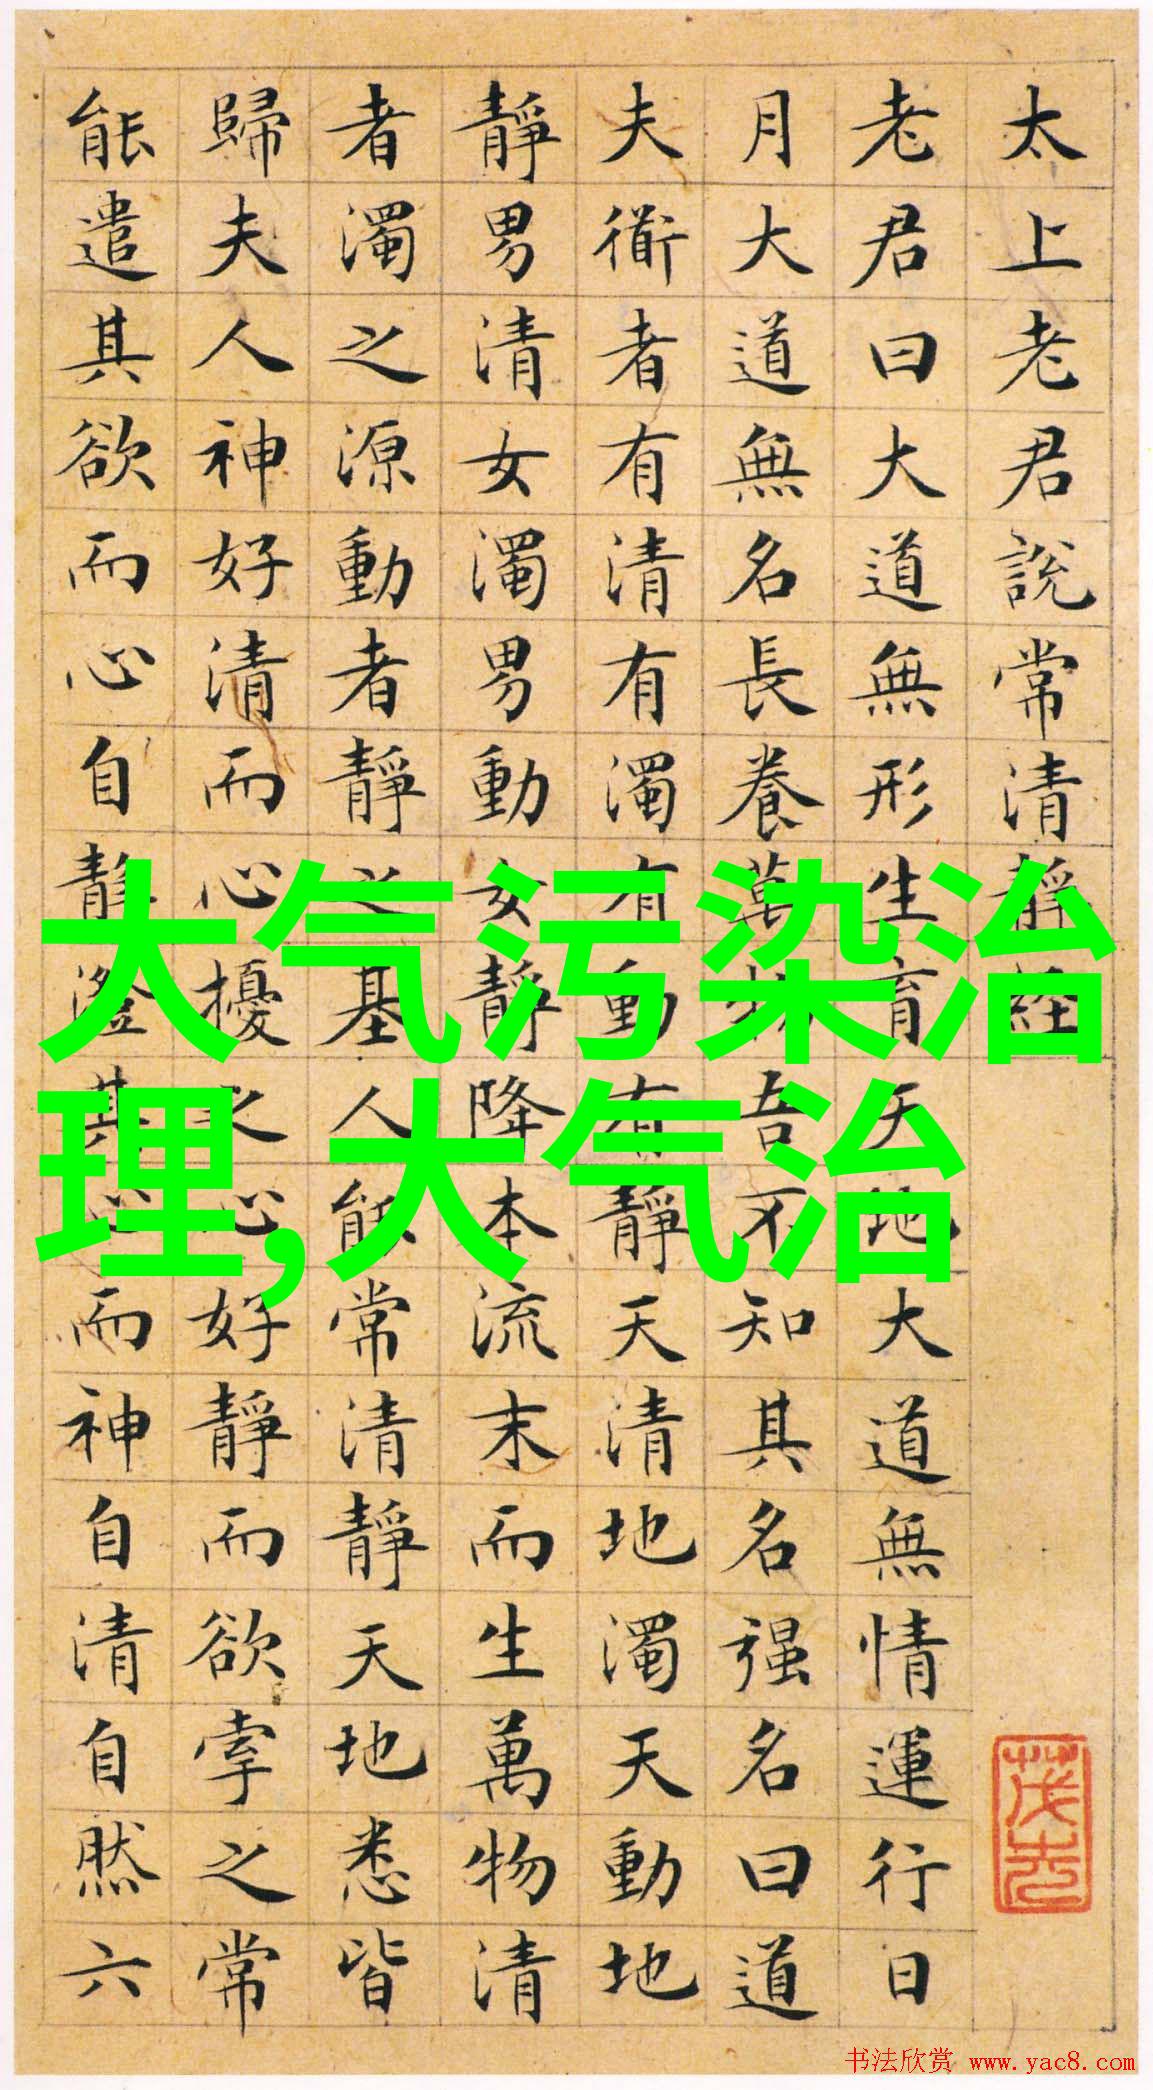 太上老君說常清靜経
老君曰大道無形生育天地大道無情運行日
月大道無名長養萬物吾不知其名强名曰道
夫衜者有清有濁有動有靜天清地濁天動地
靜男清女濁男動女靜降本流末而生萬物清
者濁之源動者靜之基人能常清靜天地悉皆
歸夫人神好清而心擾之心好靜而欲牽之常
能遣其欲而心自靜澄其心而神自清自然六
大气污染治
理,大气治
书法欣赏 www.yac8.com